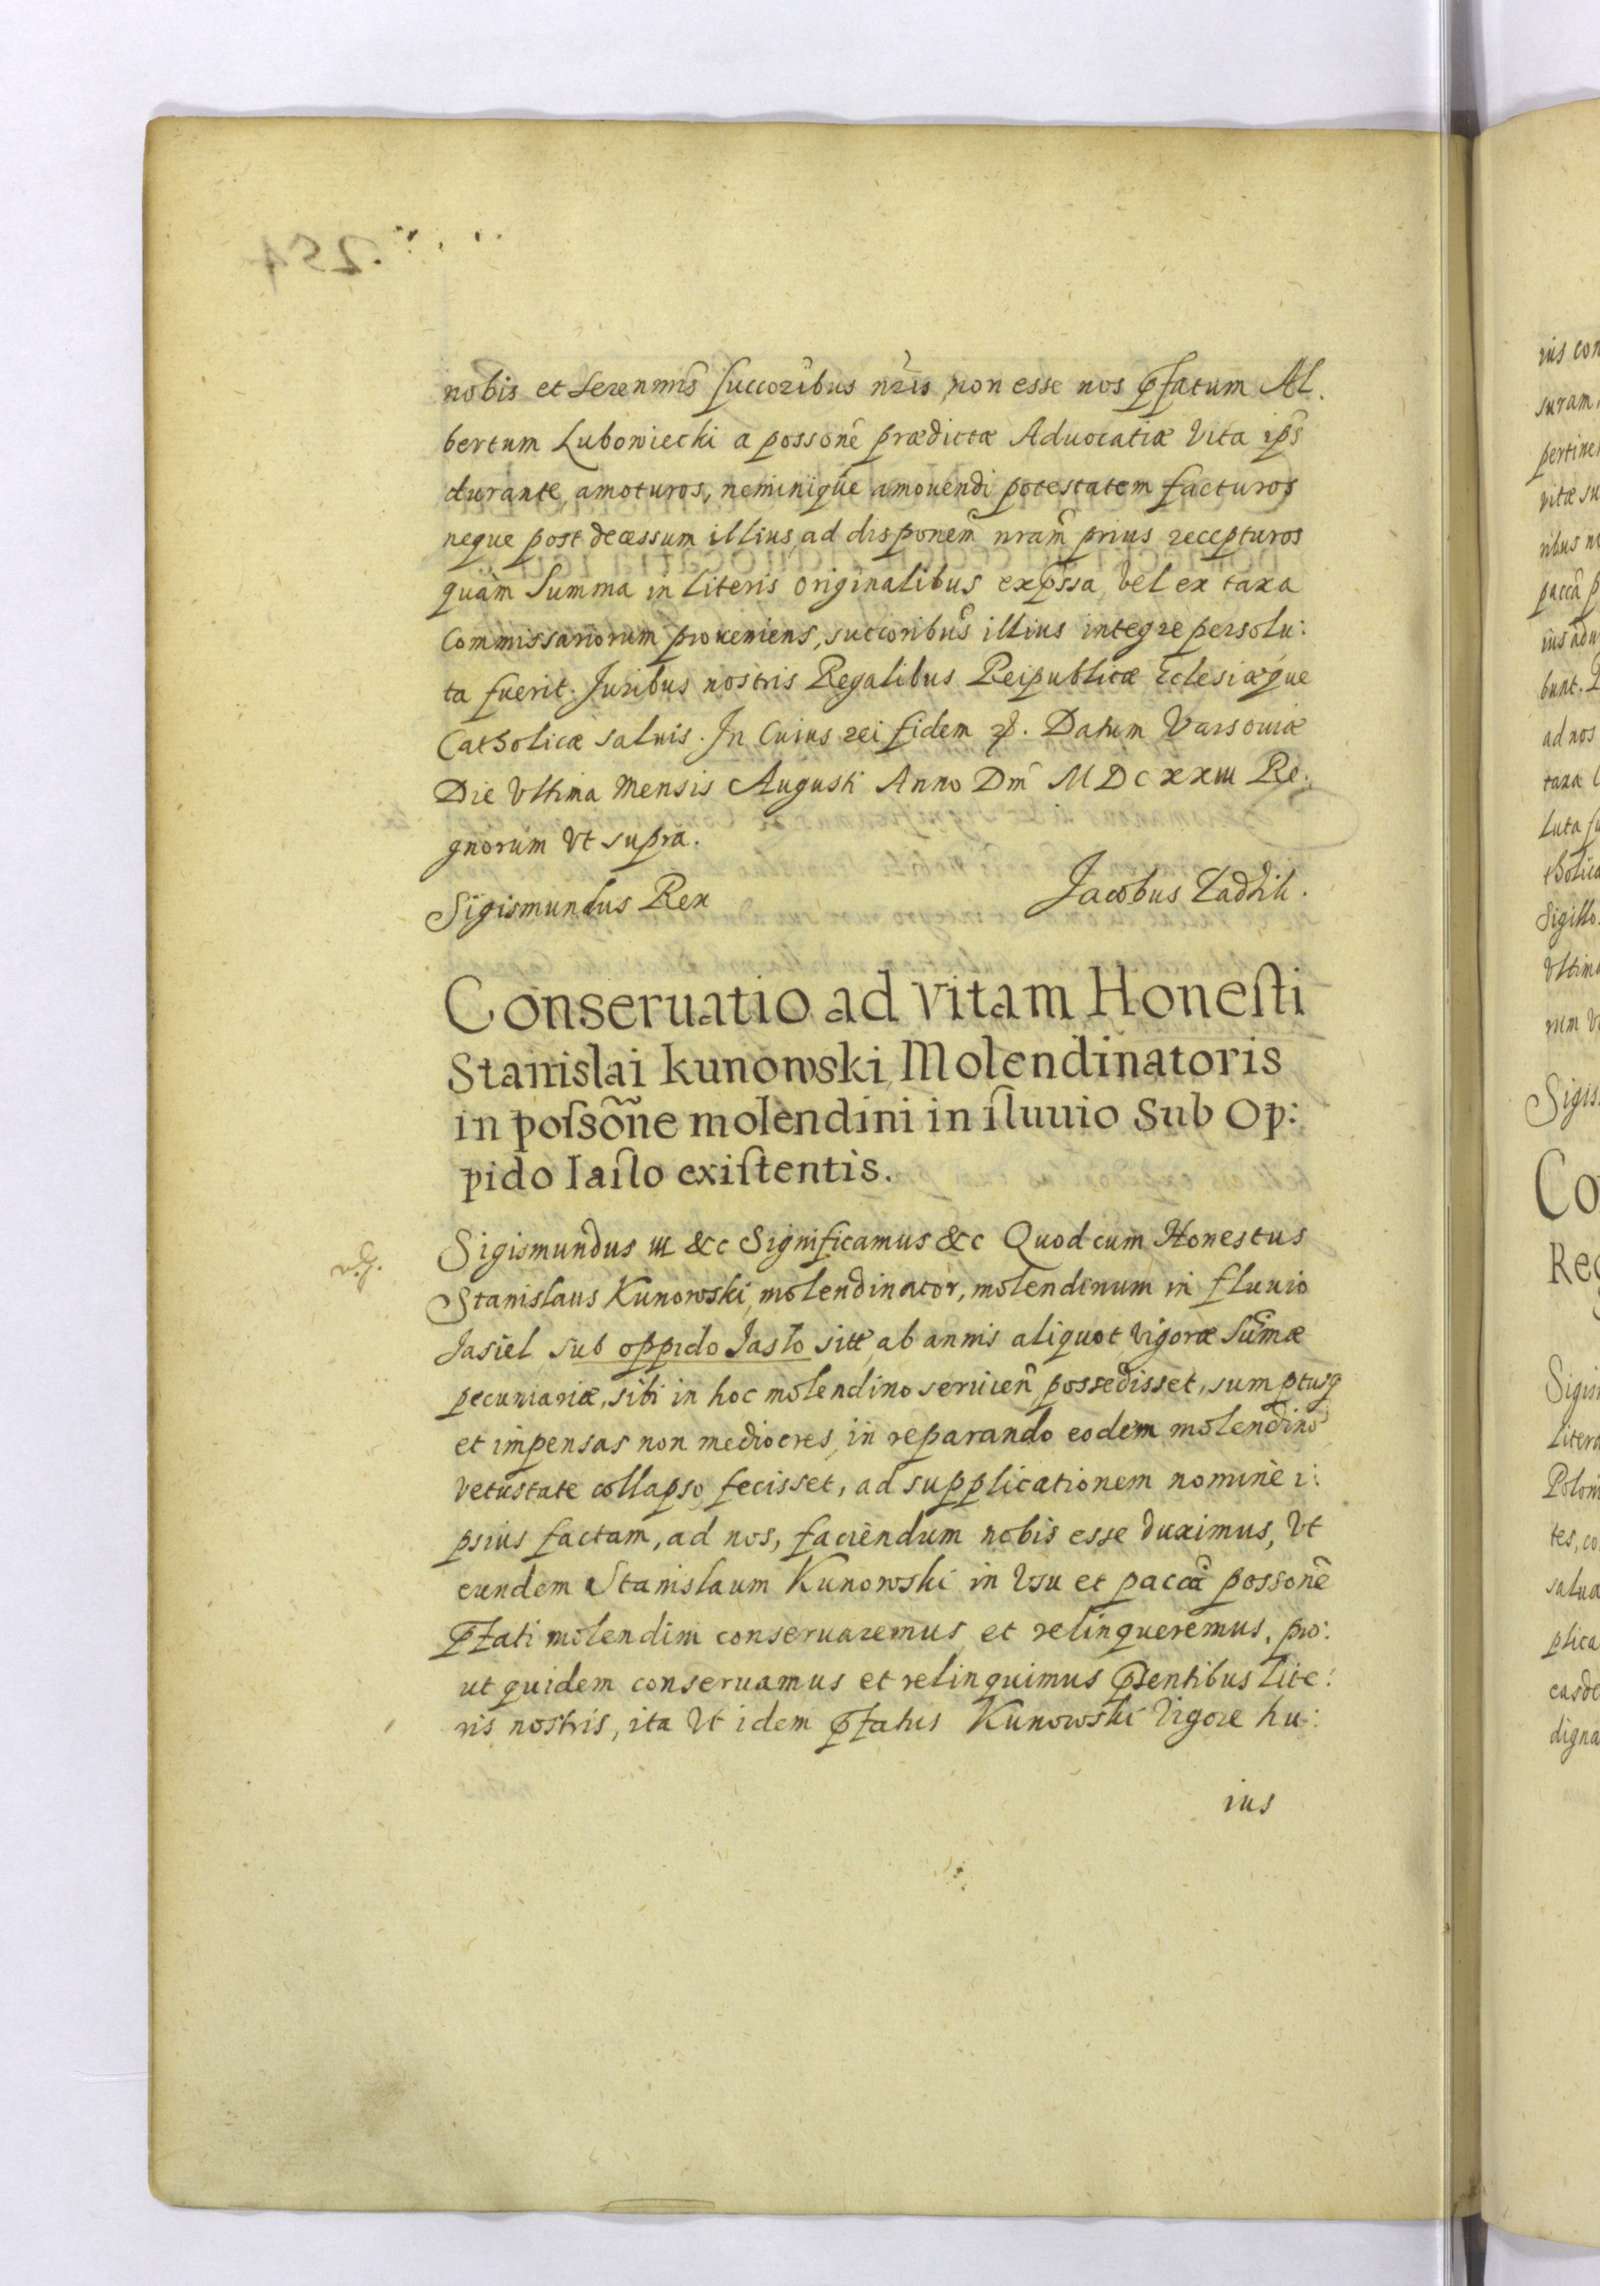 nobis et Serenmis succoribus nris non esse nos pfatum Al.
bertum Lubowiecki a possone prædictæ Aduocatiæ Vita ips
durante, amoturos, neminique amouendi potestatem facturos
neque post decessum illius, ad disponem nram prius recepturos
quàm Summa in literis originalibus expssa, vel ex taxa
Commissariorum proueniens, succoribus illius integre persolu:
ta fuerit. Juribus nostris Regalibus Reipublicæ Eclesiæque
Catholicæ saluis. In Cuius rei fidem &. Datum Varsouiæ
Die Vltima Mensis Augusti Anno Dm MDCXXIII Re.
gnorum Vt supra.
Sigismundus Rex Jacobus Zadzik.
Conseruatio ad vitam Honesti
Stanislai Kunowski Molendinatoris
in possone molendini in fluuio Sub Op:
pido Iaslo existentis.
Sigismundus III &c Significamus &c Quod cum Honestus
Stanislaus Kunowski, molendinator, molendinum in fluuio
Jasiel sub oppido Jaslo sitt, ab annis aliquot Vigoræ Sumæ
pecuniariæ, sibi in hoc molendino seruien possedisset, sumptusq
et impensas non mediocres, in reparando eodem molendino
vetustate collapso fecisset, ad supplicationem nomine i:
psius factam, ad nos, faciendum nobis esse duximus, Vt
eundem Stanislaum Kunowski in Vsu et pacca possone
pfati molendini conseruaremus et relinqueremus, pro:
ut quidem conseruamus et relinquimus psentibus lite:
ris nostris, ita Vt idem pfatus Kunowski Vigore hu:
ius